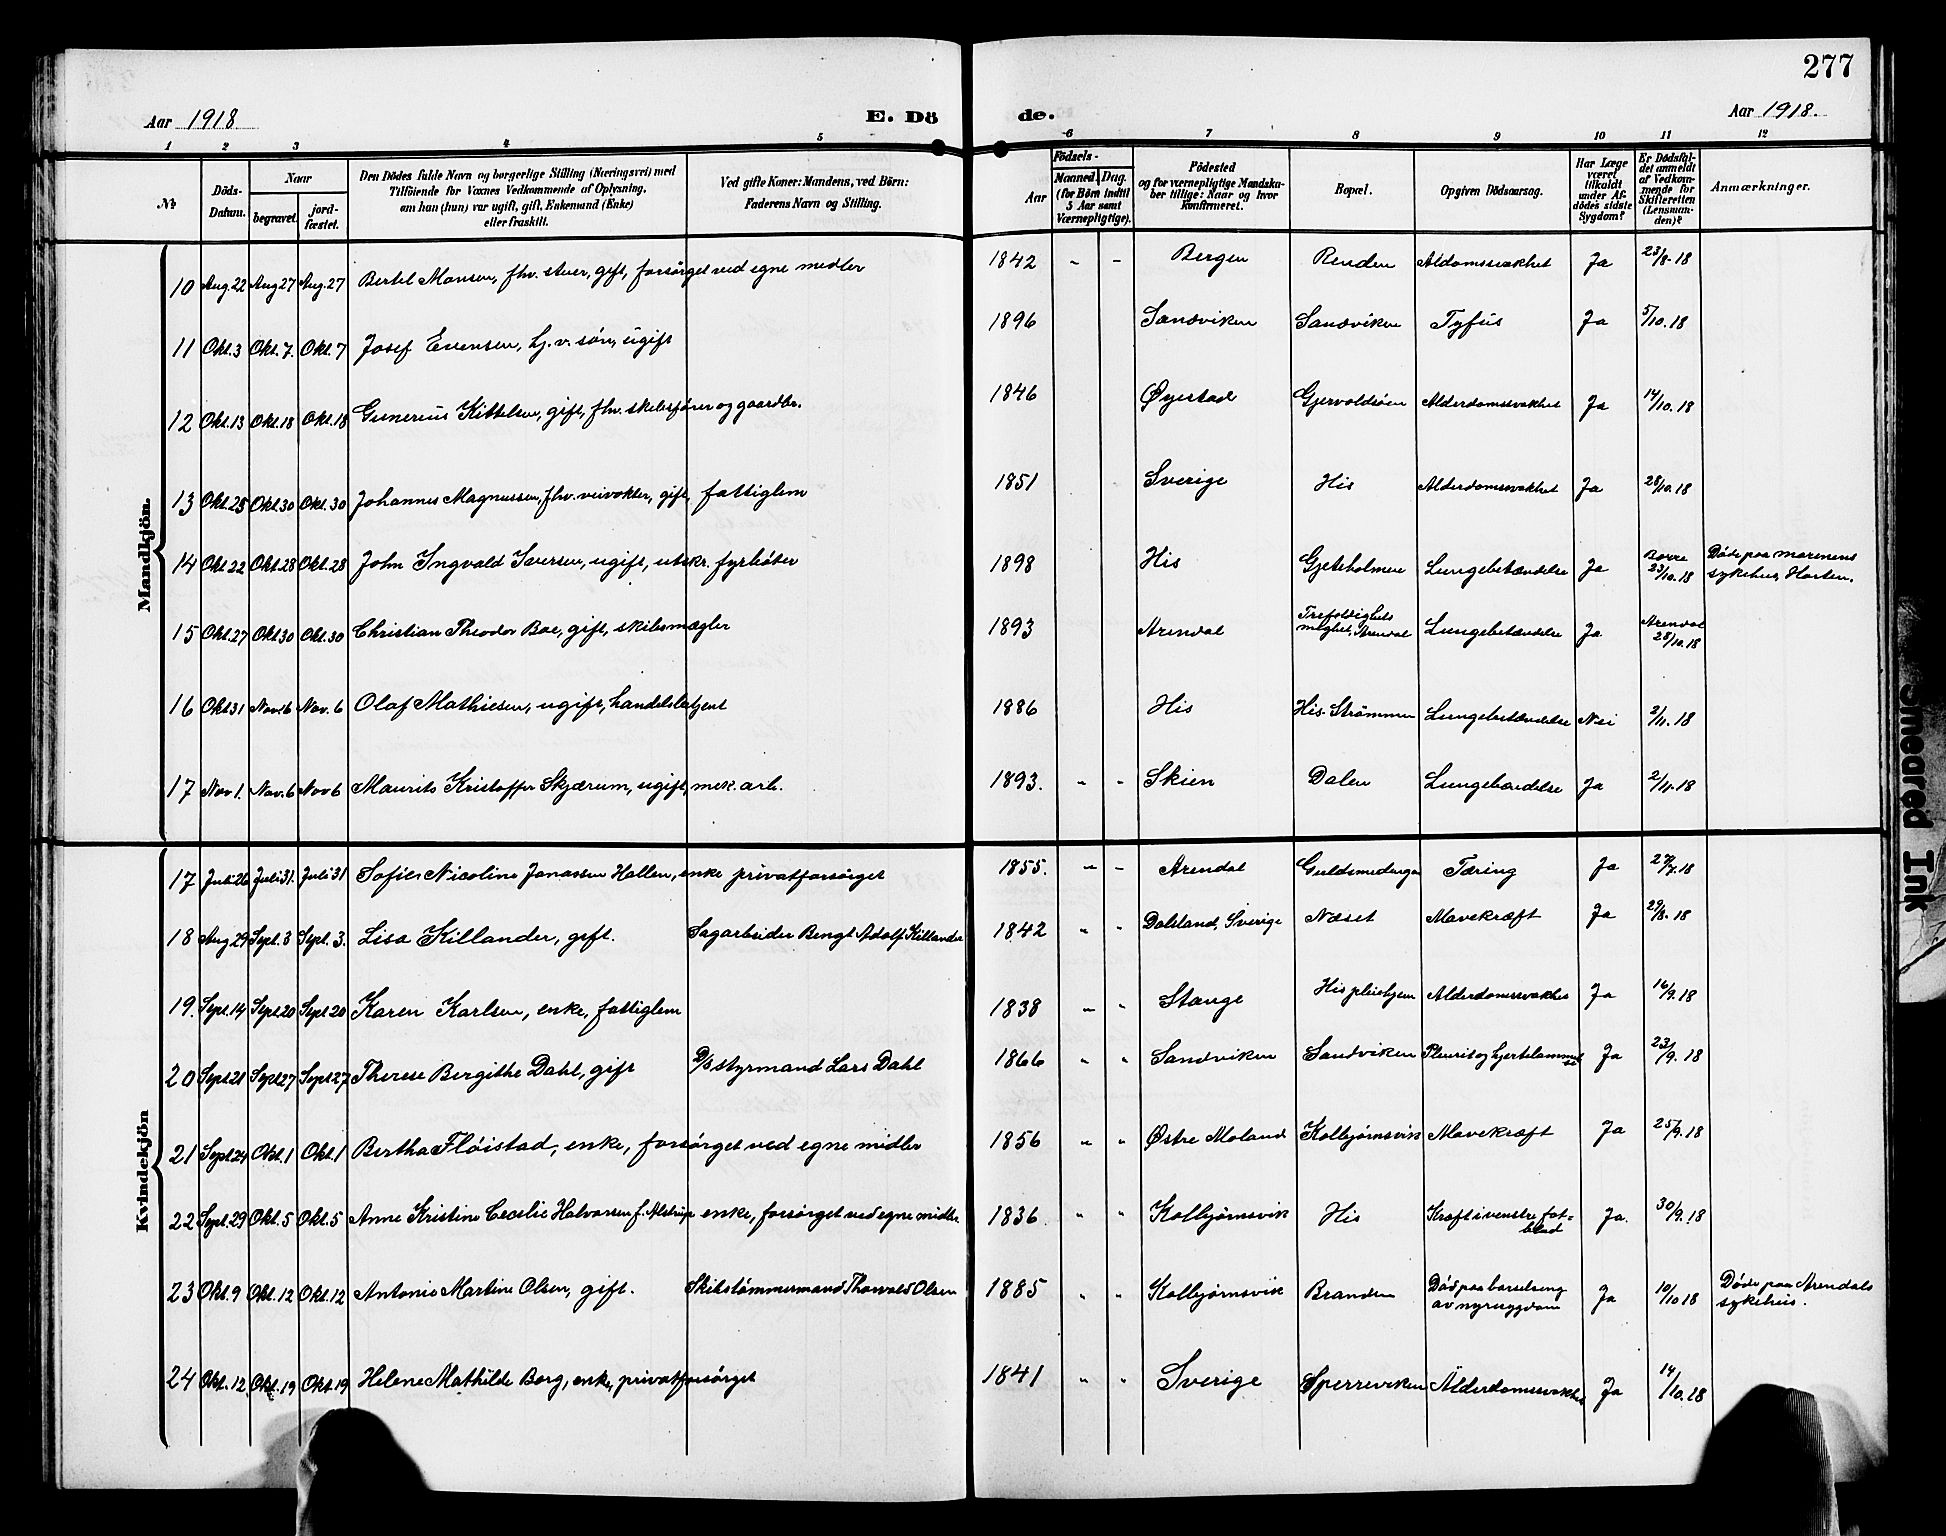 277
Aar 1918 E. Dö de. Aar 1918.
1 2 3 4 5 6 7 8 9 10 11 12
№
Döds-Datum.
Naar
begravet.
jord-fæstet.
Den Dödes fulde Navn og borgerlige Stilling (Næringsvei) med
Tilföiende for Voxnes Vedkommende af Oplysning,
om han (hun) var ugift, gift, Enkemand (Enke)
eller fraskilt.
Ved gifte Koner: Mandens, ved Börn:
Faderens Navn og Stilling.
Födsels-
Aar
Maaned. Dag.
(for Börn indtil
5 Aar samt
Værnepligtige).
Födested
og for værnepligtige Mandska-
ber tillige: Naar og hvor
konfirmeret.
Bopæl.
Opgiven Dödsaarsag.
Har Læge
været
tilkaldt
under Af-
dödes sidste
Sygdom?
Er Dödsfal-
det anmeldt
af Vedkom-
mende for
Skifteretten
(Lensman-
den)?
Anmærkninger.
Mandkjön.
10 Aug. 22 Aug 27 Aug. 27 Bertel Monsen, fhv. stuer, gift, forsørget ved egne midler 1842 - - Bergen Renden Aldomssvakhet Ja 23/8-18
11 Okt. 3 Okt. 7. Okt. 7 Josef Evensen, hj. v. søn, ugift 1896 Sandviken Sandviken Tyfus Ja 5/10.18
12 Okt. 13 Okt. 18 Okt. 18 Gunerius Kittelsen, gift, fhv. skibsfører og gaardbr. 1846 Øyestad Gjervoldsøen Alderdomssvakhet Ja 14/10.18
13 Okt. 25 Okt. 30 Okt. 30 Johannes Magnussen, fhv. veivokter, gift, fattiglem 1851 Sverige His Alderdomssvakhet Ja 28/10.18
14 Okt 22 Okt. 28 Okt. 28 John Ingvald Iversen, ugift, utskr. fyrbøter 1898 His Gjeteholmen Lungebetændelse Ja Borre 23/10.18 Døde paa marinens sykehus, Horten.
15 Okt. 27 Okt. 30 Okt. 30 Christian Theodor Boe, gift, skibsmægler 1893 Arendal Trefoldighets Arendal Lungebetændelse Ja Arendal 28/10.18
16 Okt 31 Nov. 6 Nov. 6 Olaf Mathiesen, ugift, handelsagent 1886 His His-Strømmen Lungebetændelse Nei 2/11.18
17 Nov 1. Nov. 6 Nov 6 Maurits Kristoffer Skjærum, ugift, mek. arb. 1893. - - Skien Dalen Lungebændelse Ja 2/11-18
Kvindekjön
17 Juli 26 Juli 31. Juli 31 Sofie Nicoline Jonassen Hallen, enke privatforsørget 1855. - - Arendal Guldsmedengen Tæring Ja 27/7.18
18 Aug 29 Sept. 3 Sept. 3. Lisa Killander, gift. Sagarbeider Bengt Adolf Killander 1842 " " Dalsland, Sverige Næset Mavekræft Ja 29/8-18
19. Sept. 14 Sept 20 Sept 20 Karen Karlsen, enke, fattiglem 1838 " " Stange His pleiehjem Alderdomssvakhet Ja 16/9.18
20 Sept 21 Sept 27 Sept 27 Therese Bergithe Dahl, gift D/s styrmand Lars Dahl 1866 " " Sandviken Sandviken Pleurit og hjertelammelse Ja 23/9.18
21 Sept. 24 Okt. 1 Okt. 1 Bertha Fløistad, enke, forsørget ved egne midler 1856 " " Østre Moland Kolbjørnsvik Mavekræft Ja 25/9.18
22 Sept. 29 Okt. 5 Okt. 5 Anne Kristine Cecelie Halvorsen f. Alstrup enke, forsørget ved egne midler 1836. " " Kolbjørnsvik His Kræft i venstre fot-blad Ja. 30/9.18
23 Okt. 9 Okt. 12 Okt. 12 Antonie Martine Olsen, gift. Skibstømmermand Thorvald Olsen 1885 " " Kolbjørnsvik Branden Død paa barselseng av nyresygdom Ja 10/10 18 Døde paa Arendals sykehus.
24 Okt. 12 Okt. 19 Okt. 19 Helene Mathilde Borg, enke, privatforsørget 1841 " " Sverige Sperrevi­ken Alderdomssvakhet Ja 14/10.18
Smeared Ink